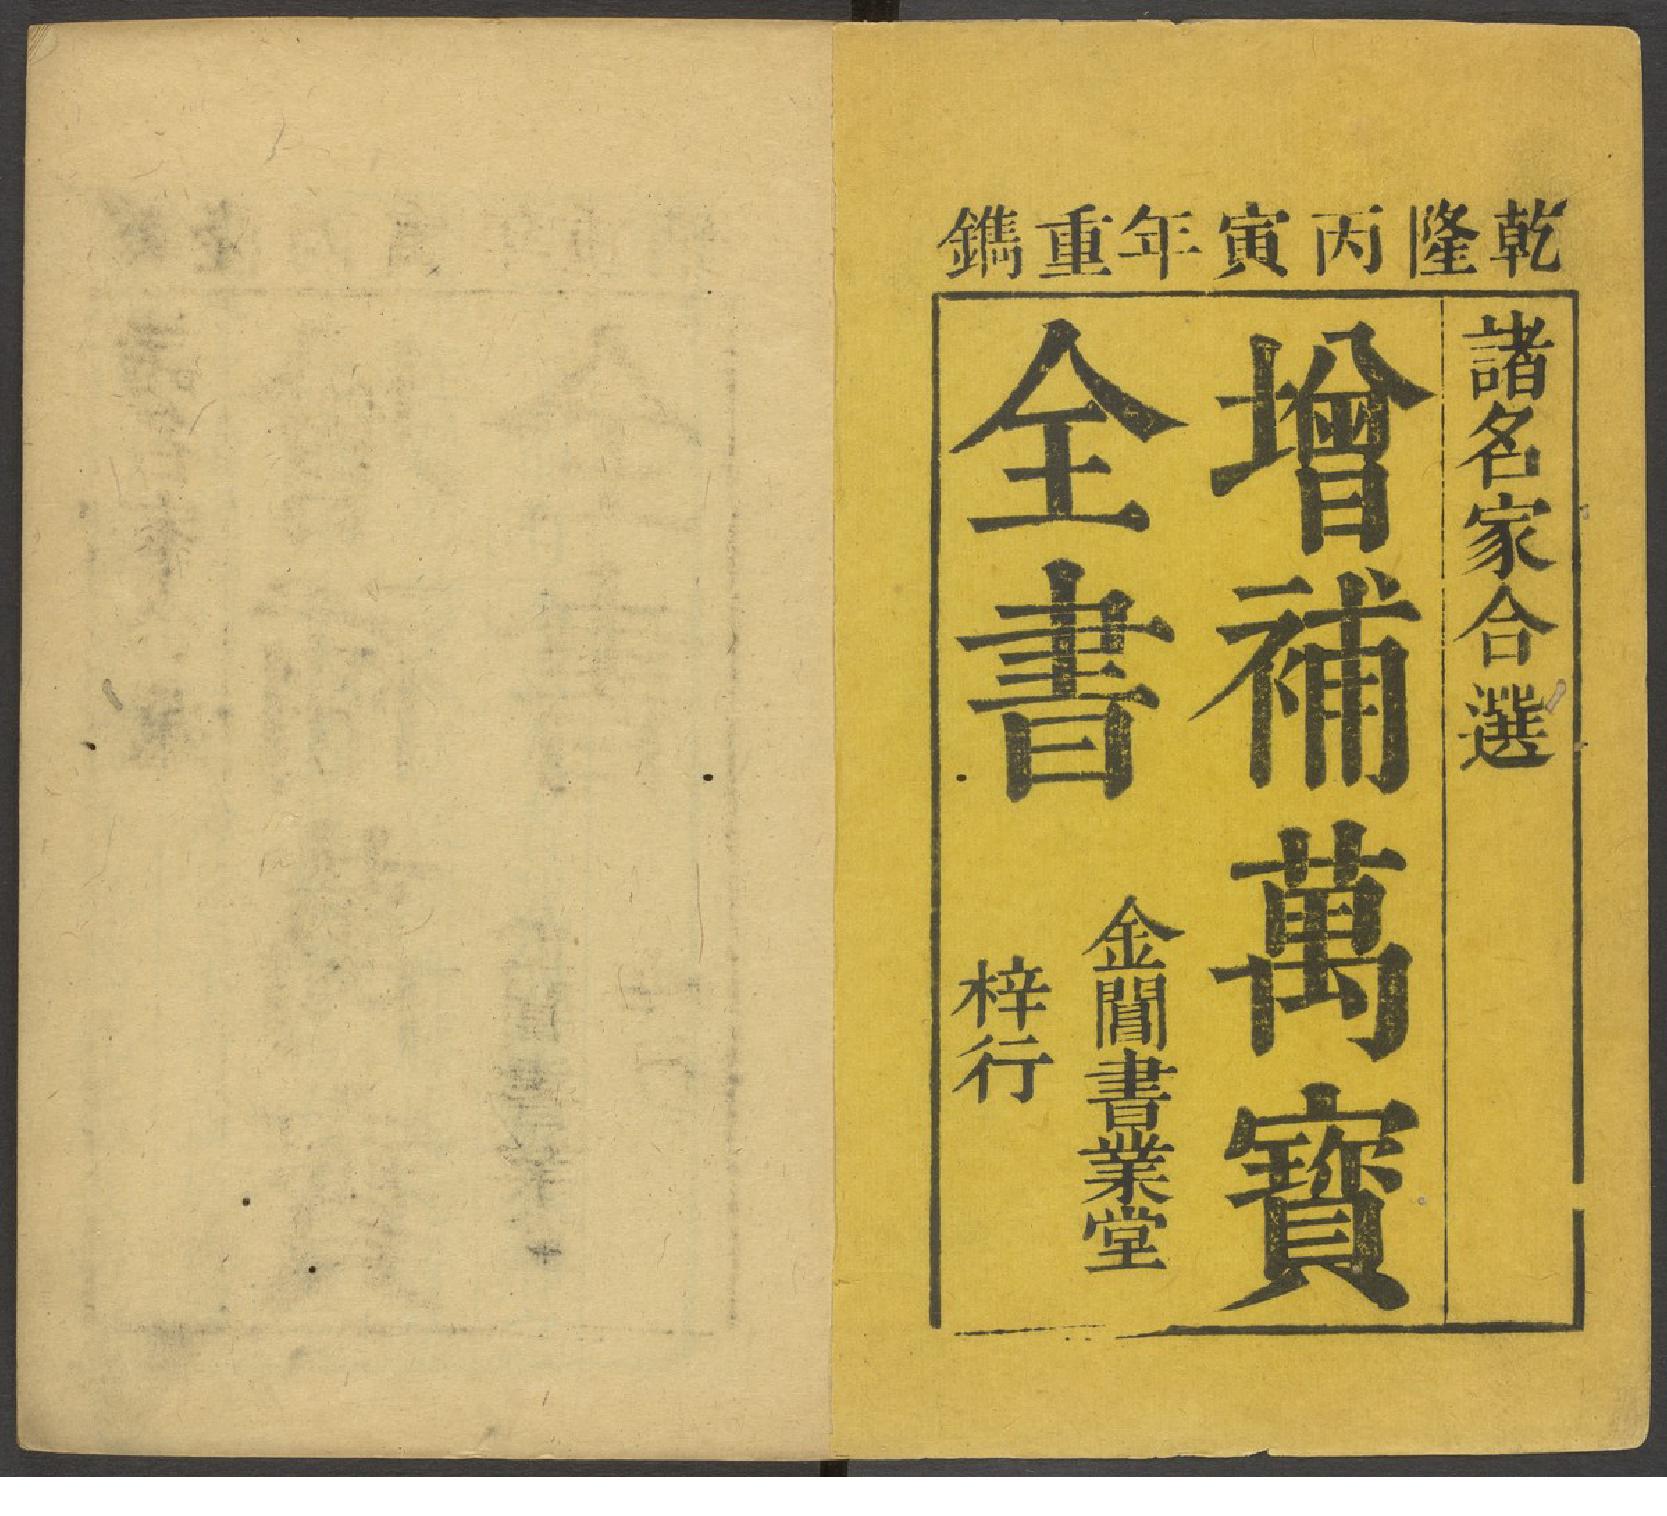 乾隆丙寅年重鐫
諸名家合選
增補萬寶
全書
金閶書業堂
梓行